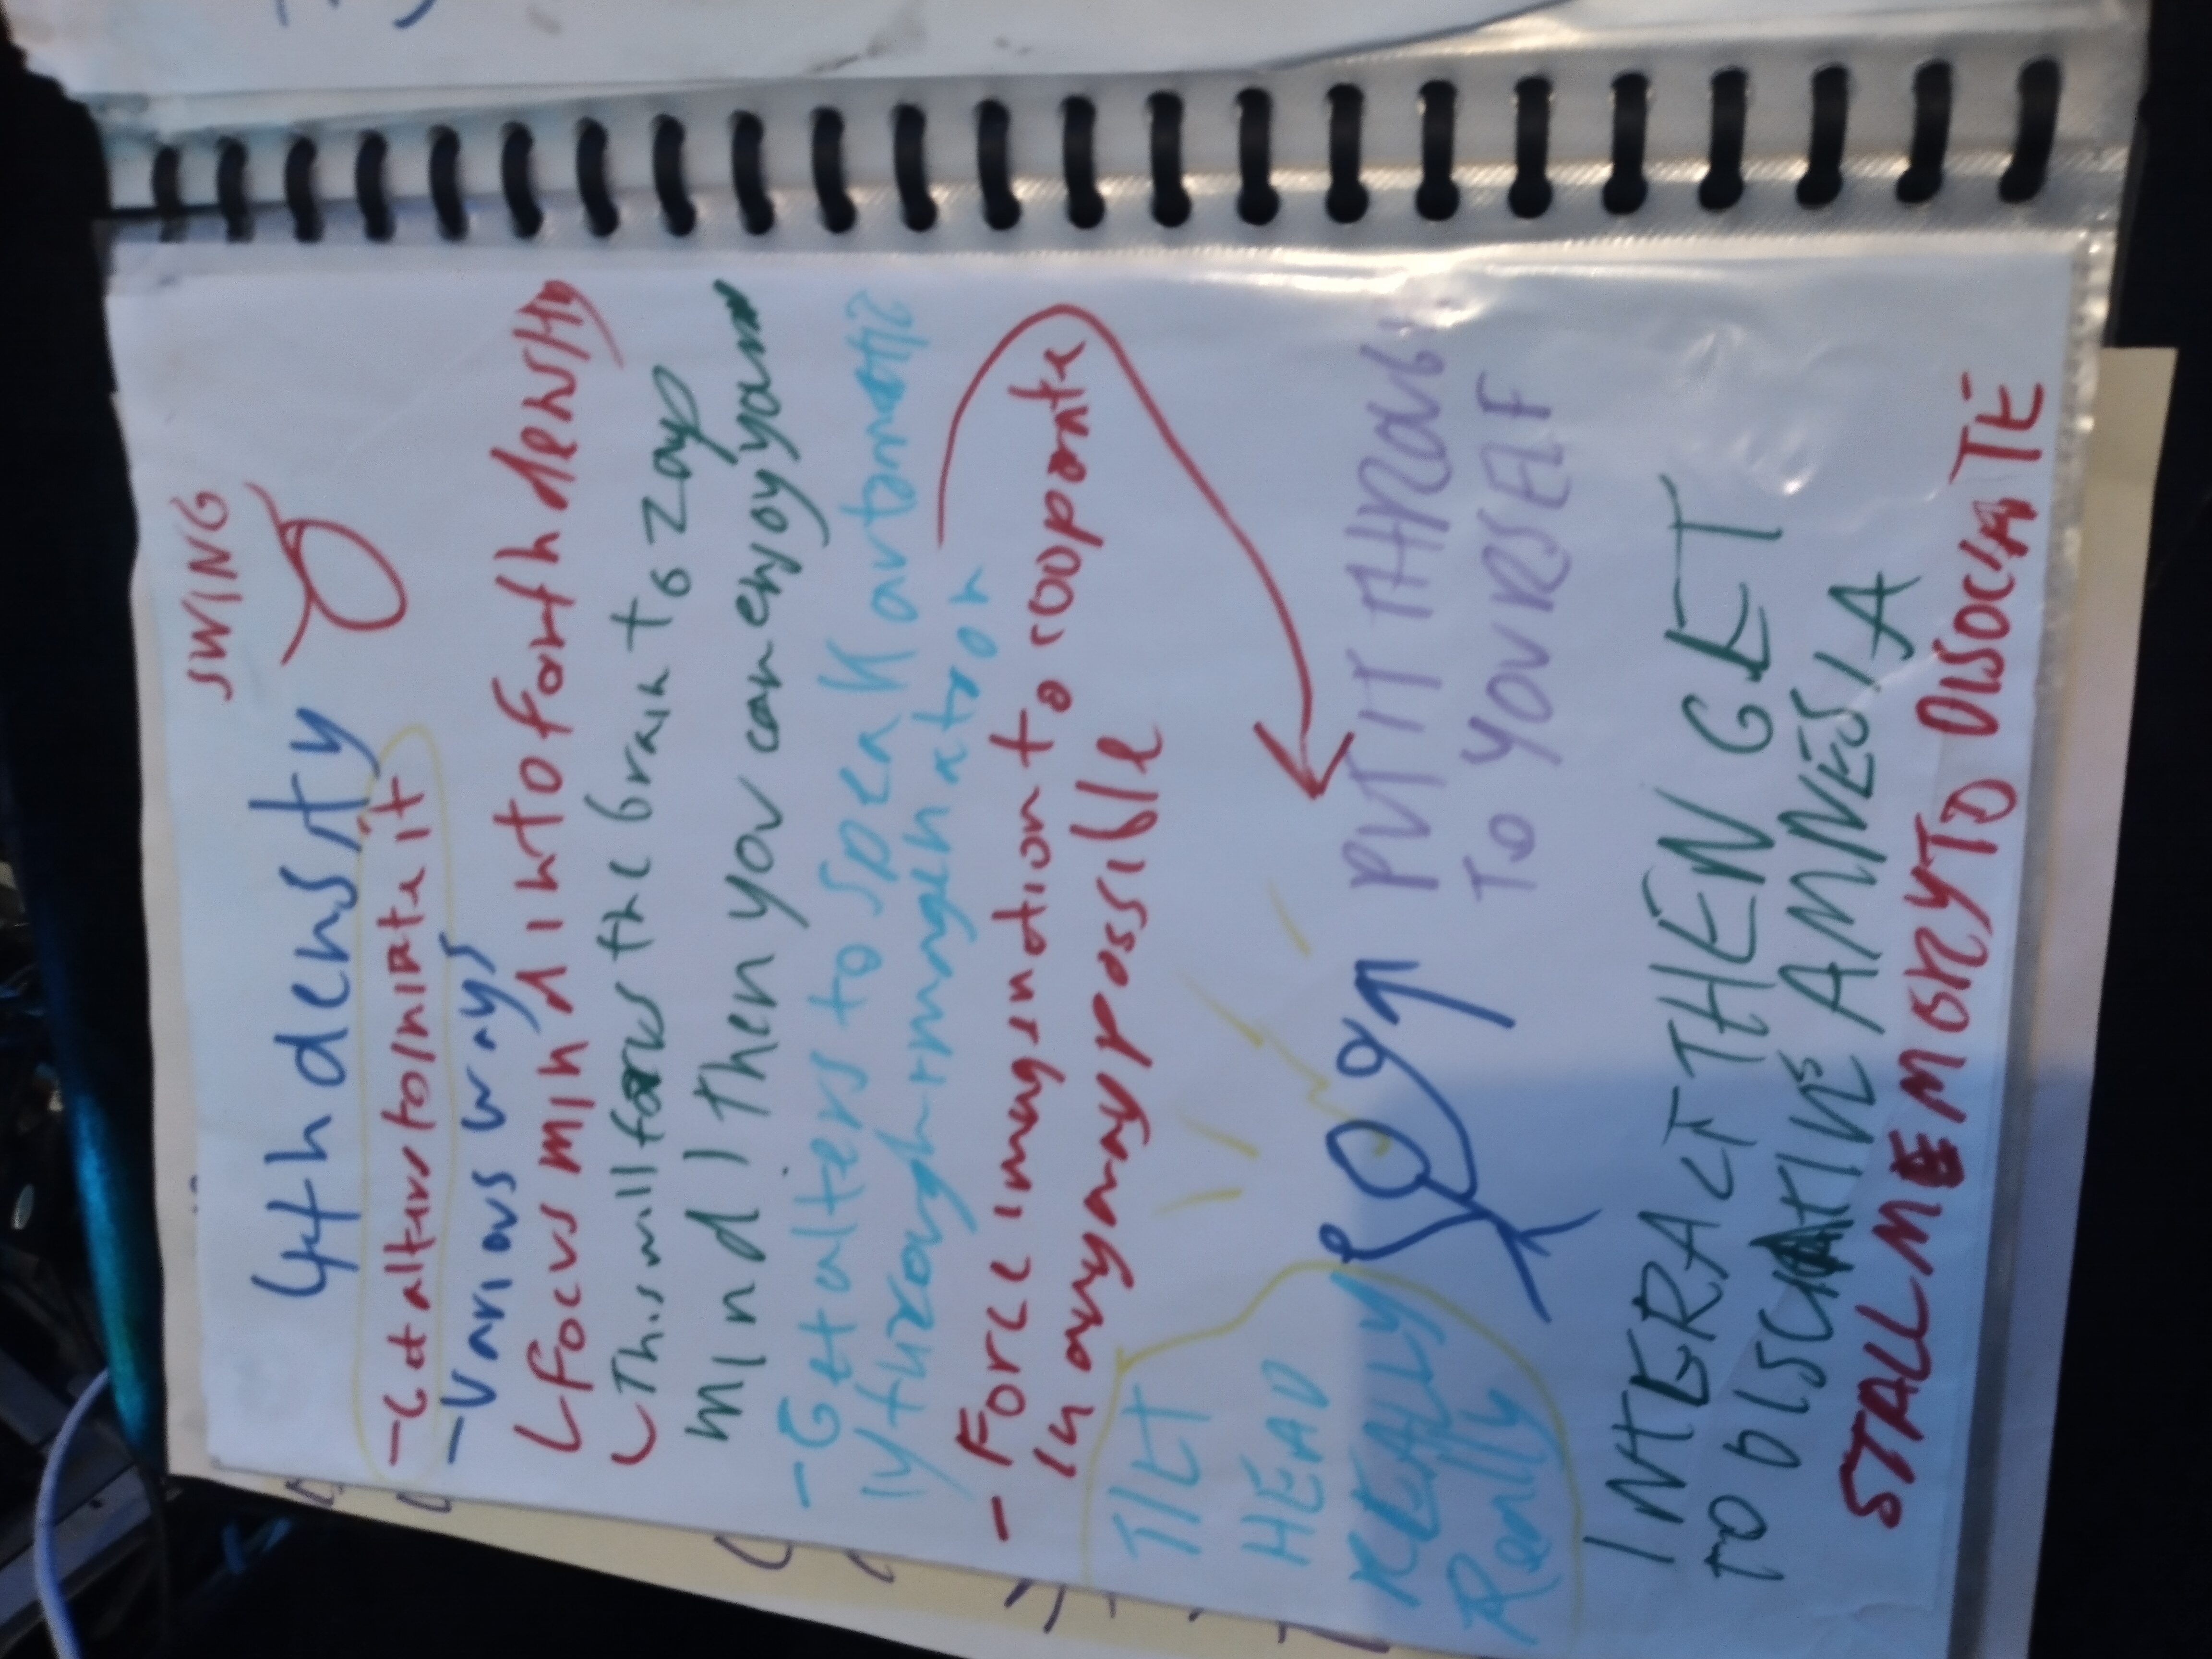 SWING
4th density
- Get alters to initiate it
- Various ways
Focus mind into forth density
This will focus the brain to zap
mind / then you can enjoy your
- Get alters to speak automatic
ly through imagenator
- Force imagination to cooperate
in any way possible
TILT
HEAD
REALLY
Really
PUT IT THROUGH
TO YOURSELF
INTERACT THEN GET
TO DISCIATIVE AMNESIA
STALL MEMORY TO DISOCIATE